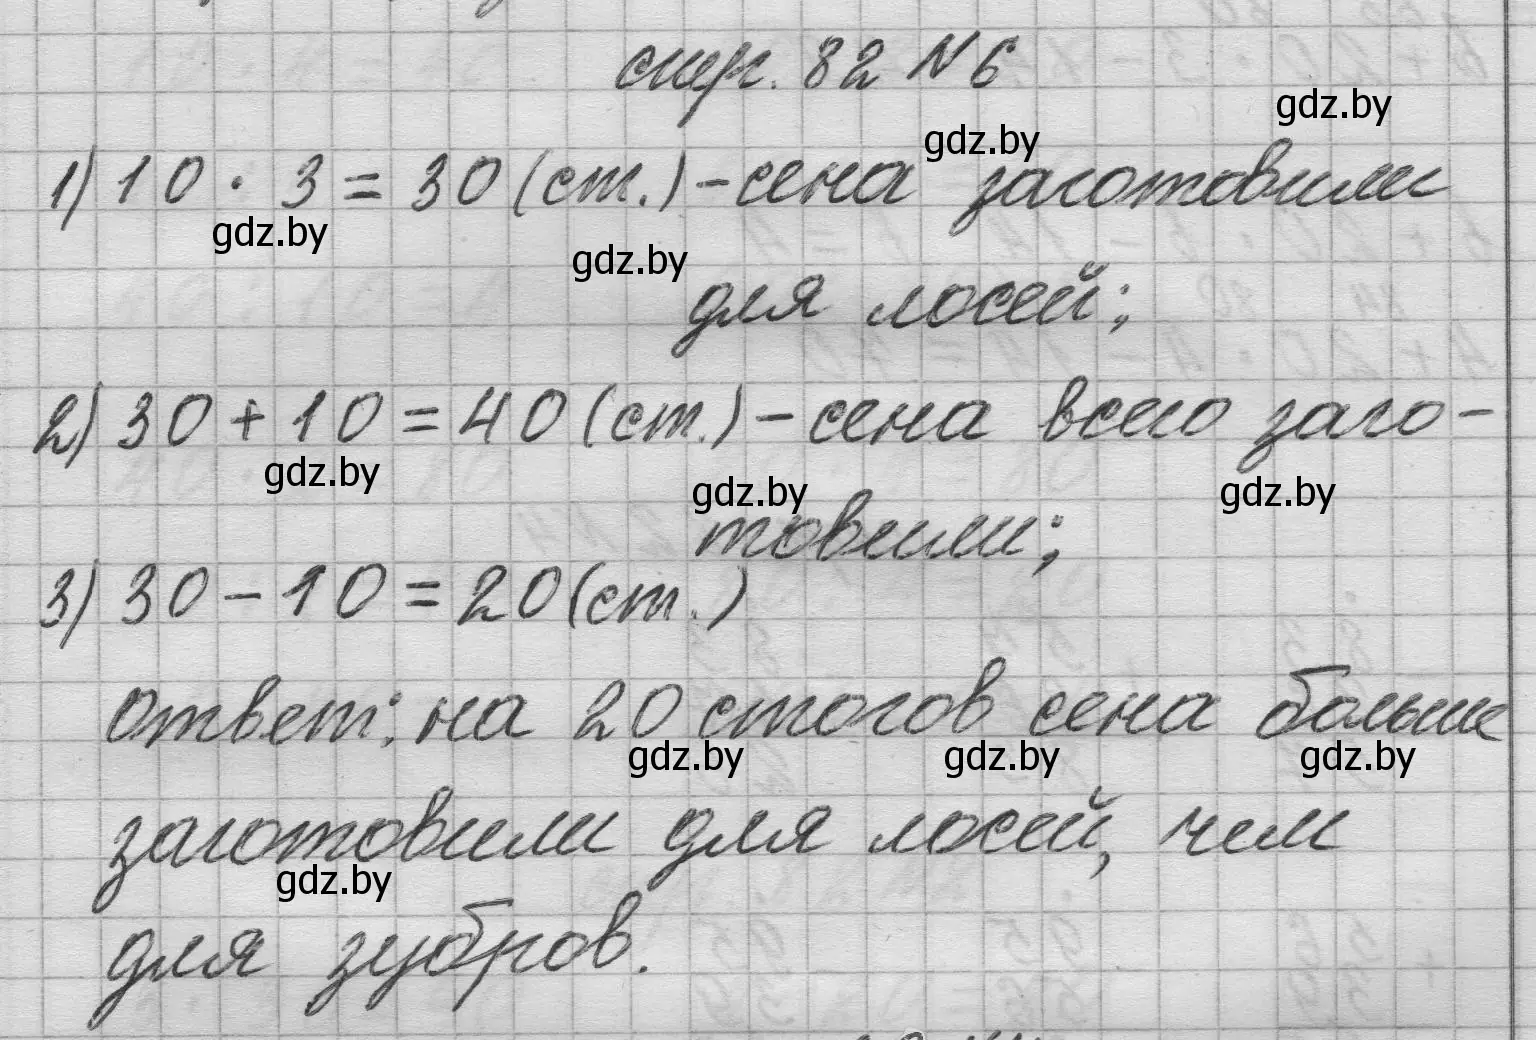 стр. 82 №6
gdz.by
gdz.by
1) 10 · 3 = 30 (ст.) - сена заготовили
gdz.by
gdz.by
для лосей;
2) 30 + 10 = 40 (ст.) - сена всего заго-
gdz.by
gdz.by
gdz.by
товили;
3) 30 - 10 = 20 (ст.)
Ответ: на 20 стогов сена больше
gdz.by
gdz.by
gdz.by
заготовили для лосей, чем
gdz.by
для зубров.